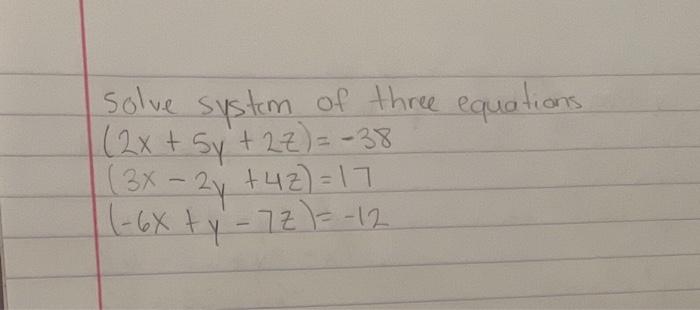 Solve system of three equations
(2x + 5y + 2z) = -38
(3x - 2y + 4z) = 17
(-6x + y - 7z) = -12